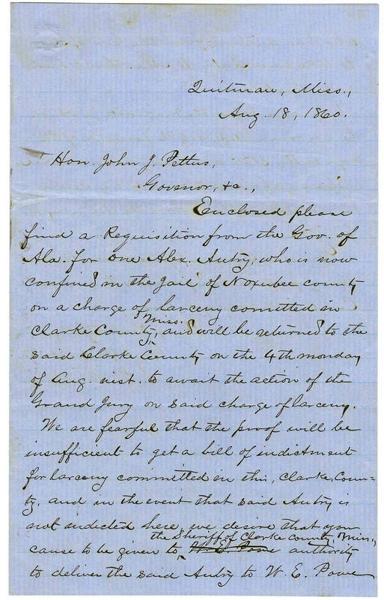 Quitman, Miss.,
Aug. 18, 1860.
Hon. John J. Pettus,
Govenor, &c.,
Enclosed please
find a Requisition from the Gov. of
Ala. for one Alex. Autry, who is now
confined in the Jail of Noxubee county
on a charge of larceny comitted in
Clarke County, Miss. and will be returned to the
said Clarke County on the 4th monday
of Aug. inst. to await the action of the
Grand Jury on said charge of larceny.
We are fearful that the proof will be
insufficient to get a bill of indictment
for larceny committed in this, Clarke, Coun-
ty, and in the event that said Autry is
not indicted here, we desire that you
cause to be given to the Sheriff of Clarke County, Miss., W. E. Powe authority
to deliver the said Autry to W. E. Powe